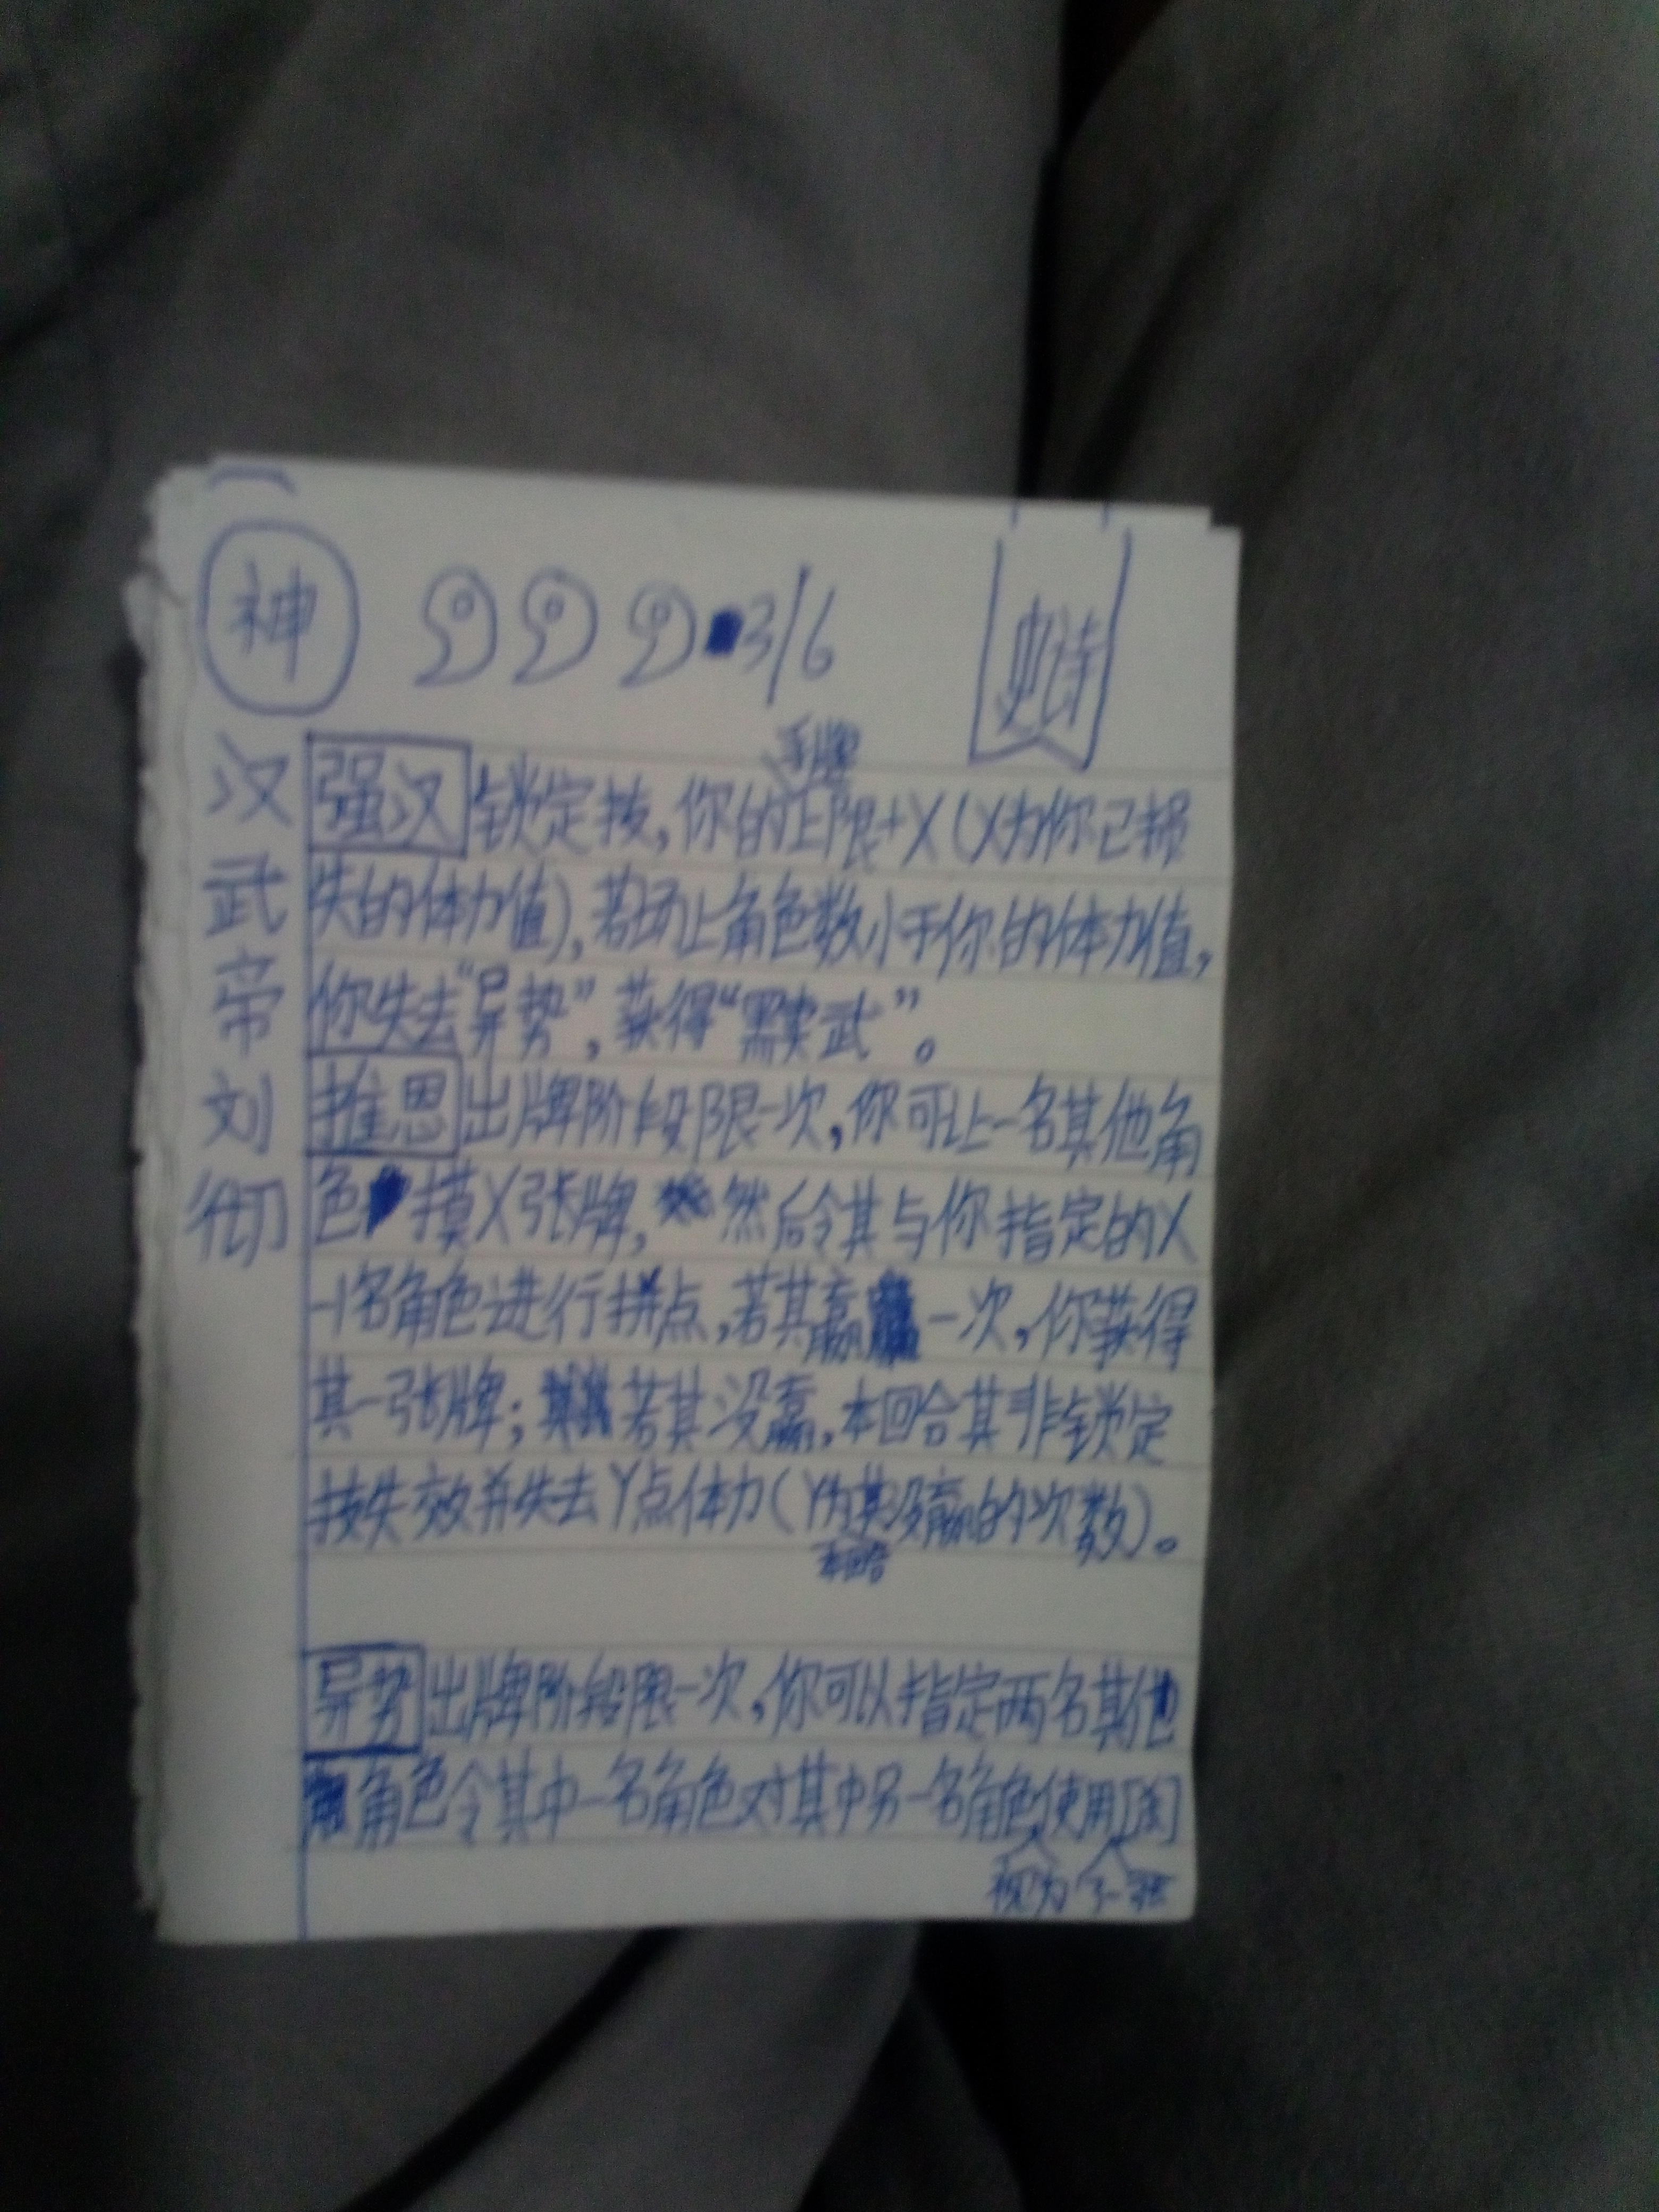 神 3/6 史诗
汉武帝刘彻
手牌
强汉 锁定技,你的上限+X(X为你已损
失的体力值),若场上角色数小于你的体力值,
你失去“异势”,获得“黩武”。
推恩 出牌阶段限一次,你可让一名其他角
色摸X张牌,然后令其与你指定的X
-1名角色进行拼点,若其赢一次,你获得
其一张牌;若其没赢,本回合其非锁定
技失效并失去Y点体力(Y为其没赢的次数)。
本回合
异势 出牌阶段限一次,你可以指定两名其他
角色令其中一名角色对其中另一名角色使用[杀]
视为 了一张